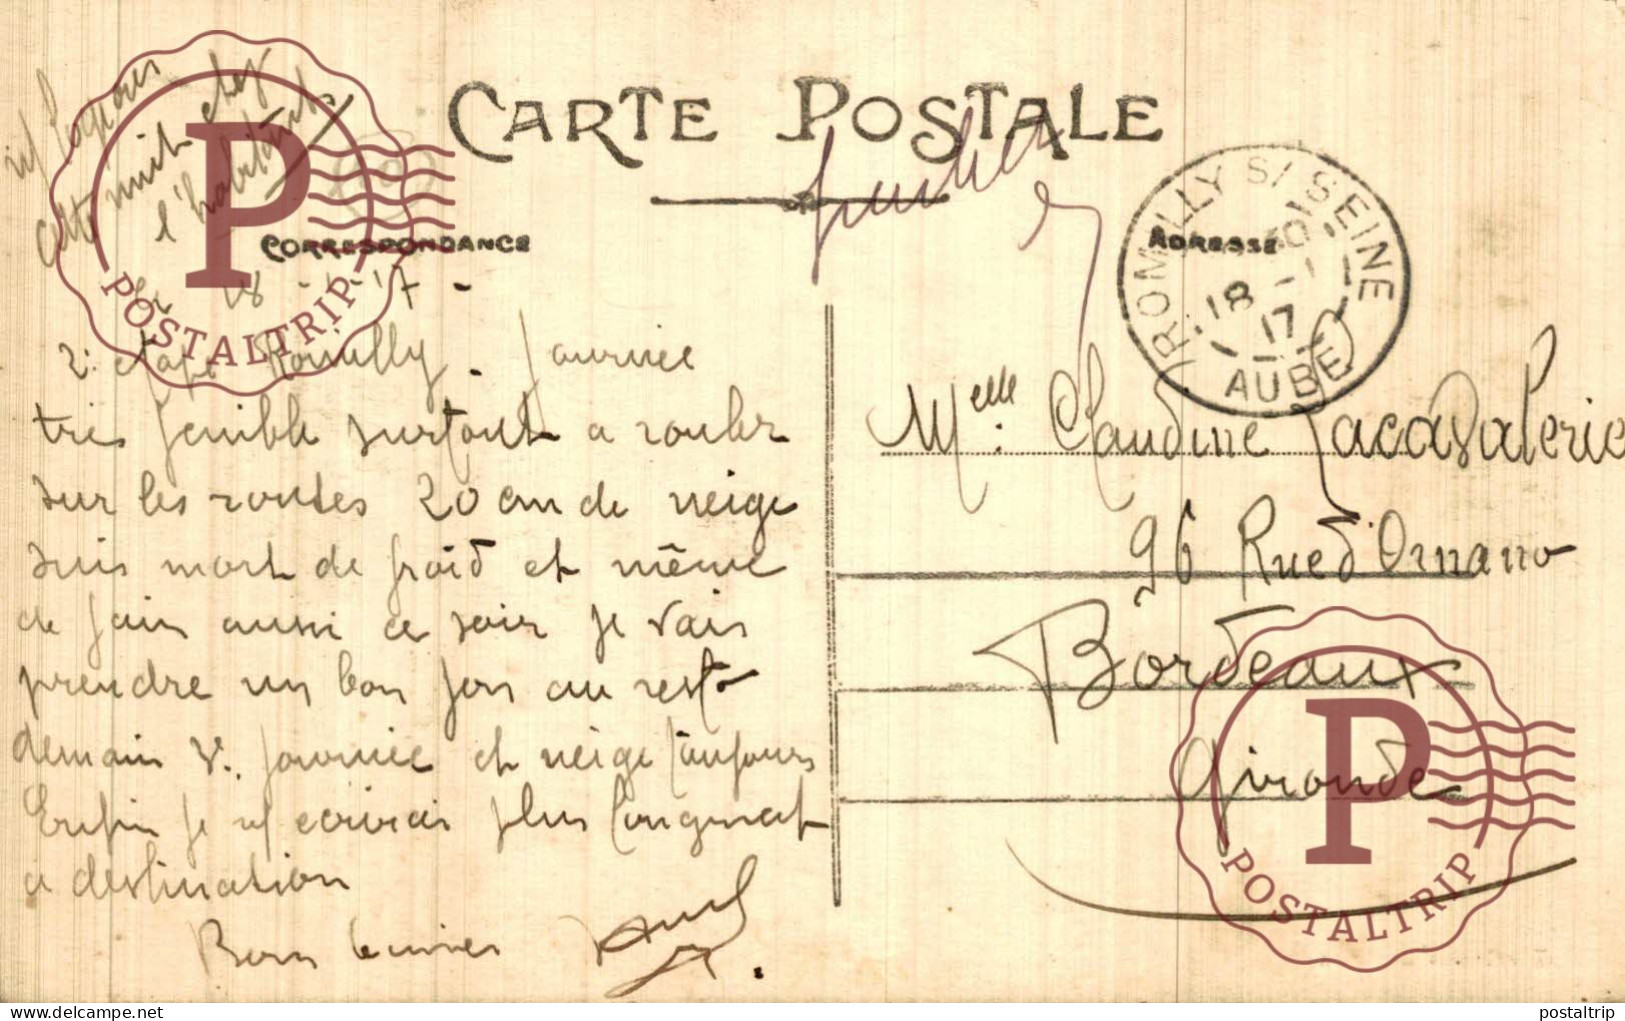 CARTE POSTALE
CORRESPONDANCE
ADRESSE
ROMILLY S/ SEINE
18 - 1
17
AUBE
cette nuit chez
l'habitant
18 - 1 - 17 -
2e étape Romilly - Journée
très penible surtout a rouler
sur les routes 20 cm de neige
suis mort de froid et même
de faim aussi ce soir je vais
prendre un bon au resto
demain 3e journée et neige toujours
Enfin je écrirai plus longuement
a destination
Bons
Melle Claudine Lacavalerie
96 Rue d'Ornano
Bordeaux
Gironde
POSTALTRIP
POSTALTRIP
delcampe.net
postaltrip